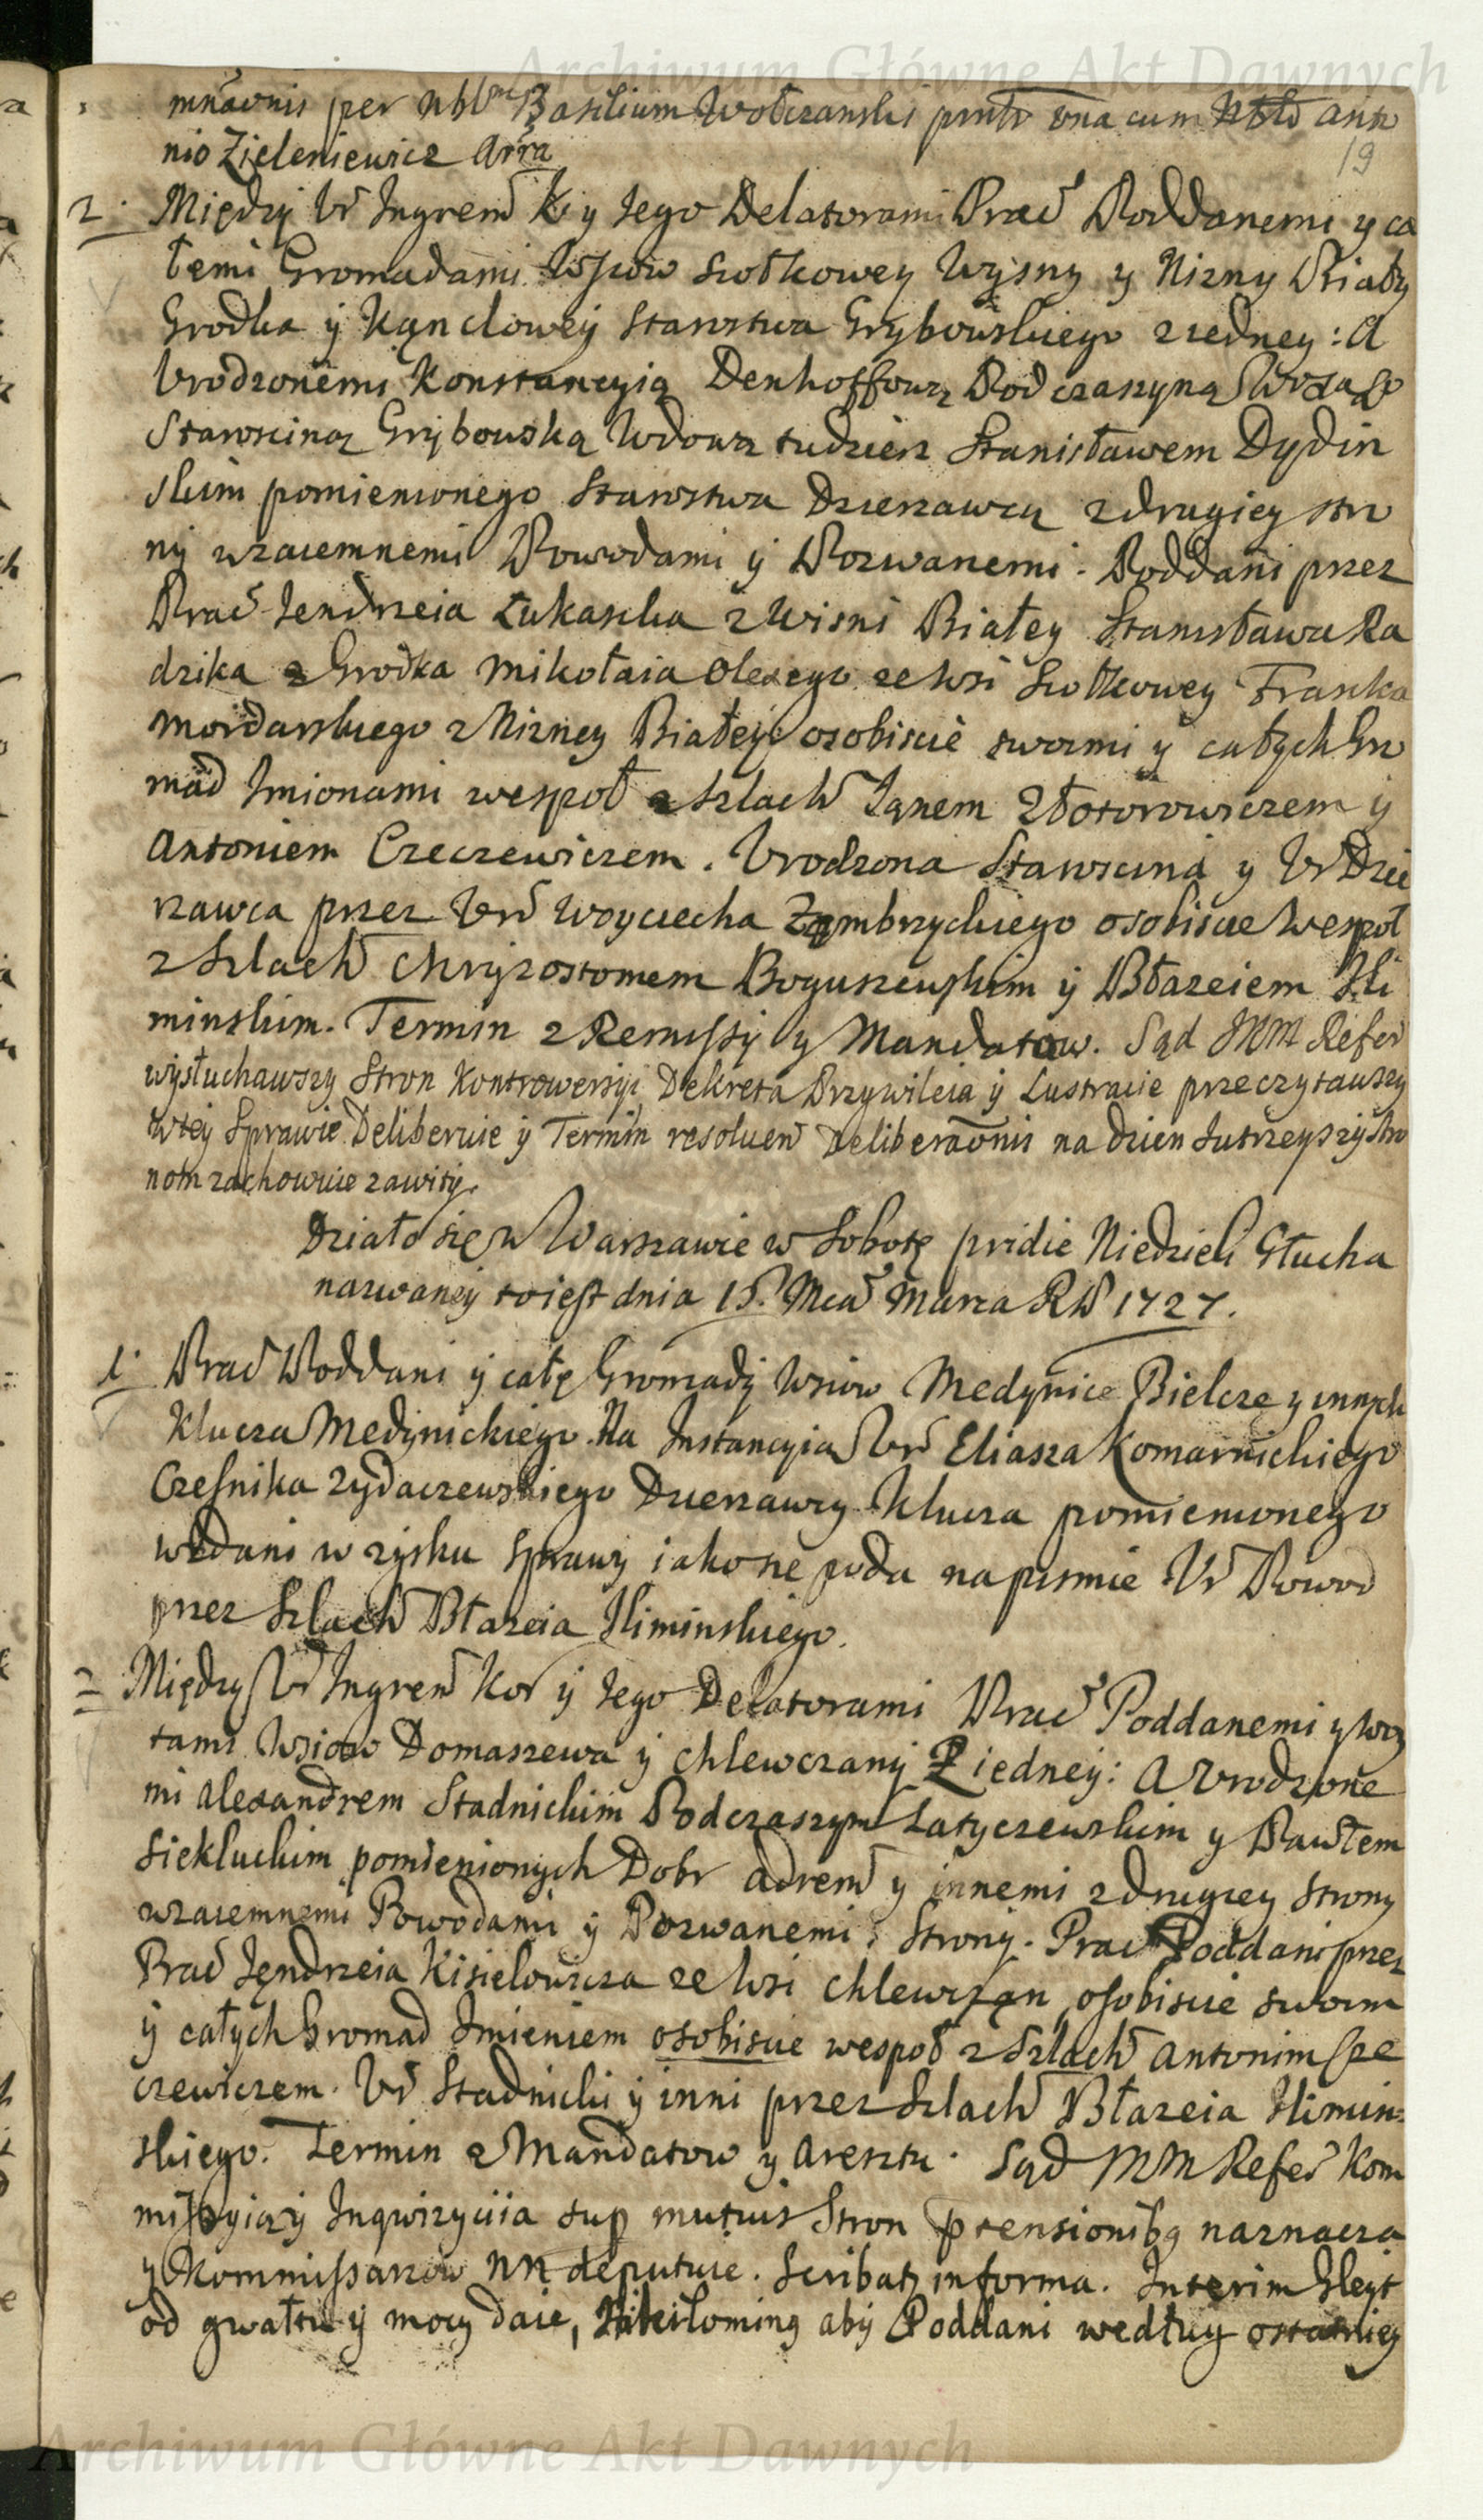 Archiwum Główne Akt Dawnych
mnãvnis per Nbl Basilium Wołczanski pnntr vna cum Nbld Anto
nio Zieleniewicz Arra
19
2. Między Ur Ingrem K y Jego Delatorami Prac Poddanemi y ca
łemi Gromadami Wsiow Siołkowey Wyżny y Nizny Biały
Grodka y Kąnclowey Starostwa Grybowskiego z iedney: A
Urodzonemi Konstancyią Denhoffową Podczaszyną
Starosciną Grybowską Wdową tudziesz Stanisławem Dydin
skim pomienionego Starostwa Dzierzawcą z drugiey stro
ny wzaiemnemi Powodami y Pozwanemi. Poddani przez
Prac Jendrzeia Łukaszka z Wisni Białey Stanisława Ra
dzika z Grodka Mikołaia Olexego ze Wsi Siołkowey Franka
Mordarskiego z Nizney Białey osobiscie swoimi y całych Gro
mad Imionami wespoł z Szlach Janem Złotorowiczem y
Antoniem Czeczewiczem. Urodzona Starościna y Ur Dzie
rzawca przez Ur Woyciecha Zambrzyckiego osobiscie wespoł
z Szlach Chryzostomem Boguszewskim y Błazeiem Sli
minskim. Termin z Remissy y Mandatow. Sąd JKM Refer
wysłuchawszy Stron Kontrowersyi Dekreta Przywileia y Lustracie przeczytawszy
w tey Sprawie Deliberuie y Termin resoluen Deliberaõnis na dzien Jutrzeyszy Stro
nom zachowuie zawity.
Działo się w Warszawie w Sobotę pridie Niedzieli Głucha
nazwaney to iest dnia 15. Mca Marca RP 1727.
1. Prac Poddani y całe Gromady Wsiow Medynice Bielcze y innych
Klucza Medynickiego. Na Instancyią Ur Eliasza Komarnickiego
Czesnika Zydaczewskiego Dzierzawcy Klucza pomienionego
wzdani w zysku sprawy iako się poda na pismie Ur Powod
przez Szlach Błazeia Sliminskiego.
2 Między Ur Ingrem Kor y Jego Delatorami Prac Poddanemi y Woy
tami Wsiow Domaszewa y Chlewczany Z iedney: A Urodzone
mi Alexandrem Stadnickim Podczaszym Latyczewskim y Pawłem
Siekluckim pomienionych Dobr adrem y innemi z drugiey strony
wzaiemnemi Powodami y Pozwanemi: Strony. Prac Poddani przez
Prac Jęndrzeia Kisielowicza ze Wsi Chlewczan osobiscie swoim
y całych Gromad Imieniem osobiscie wespoł z Szlach Antonim Cze
czewiczem. Ur Stadnicki y inni przez Szlach Błazeia Slimin=
skiego. Termin z Mandatow y Aresztu. Sąd JKM Refer Kom
missyią y Inqwizyciia sup mutuis Stron ptensionibq naznacza
y Kommissarzow NN deputuie. Scribatz informa. Interim Gleyt
od gwałtu y mocy daie, aby Poddani według ostatniey
Archiwum Główne Akt Dawnych